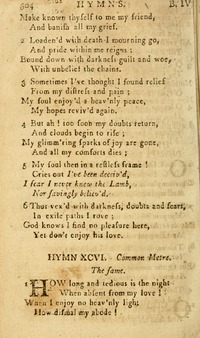 504 HYMNS. B. IV
Make known thyself to me my friend,
And banish all my grief.
2 Loaden'd with death I mourning go,
And pride within me reigns;
Bound down with darkness guilt and woe,
With unbelief the chains.
3 Sometimes I've thought I found relief
From my distress and pain;
My soul enjoy'd a heav'nly peace,
My hopes reviv'd again.
4 But ah! too soon my doubts return,
And clouds begin to rise;
My glimm'ring sparks of joy are gone,
And all my comforts dies;
5 My soul then in a restless frame!
Cries out I've been deceiv'd,
I fear I never knew the Lamb,
Nor savingly believ'd.
6 Thus vex'd with darkness, doubts and fears,
In exile paths I rove;
God knows I find no pleasure here,
Yet don't enjoy his love.
HYMN XCVI. Common Metre.
The same.
1 HOW long and tedious is the night
When absent from my love!
When I enjoy no heav'nly light
How dismal my abode!